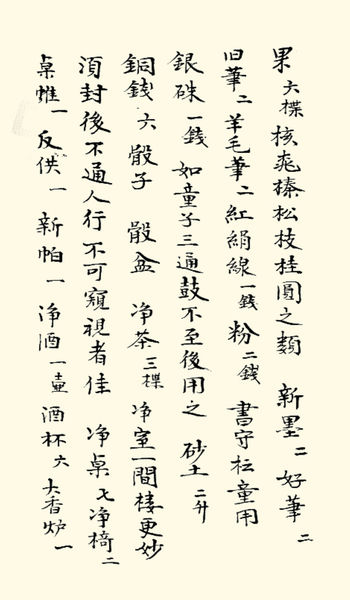 果六楪核桃榛松枝桂圓之類 新墨二好筆二
旧筆二羊毛筆二紅絹線一錢粉二錢 書守坛童用
銀硃一錢如童子三通鼓不至後用之 砂土二升
銅錢六骰子 骰盆 净茶三楪净室一間楼更妙
須封後不通人行不可窺視者佳 净桌七净椅二
桌帷一反供一新帕一净酒一壶酒杯六大香炉一